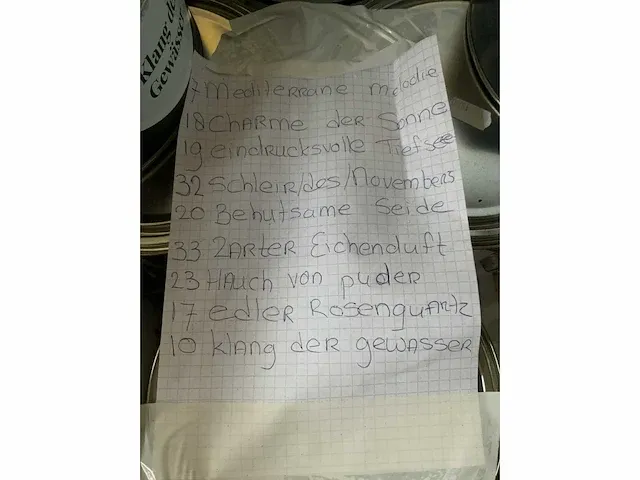 Klang der
Gewässer
7 Mediterrane melodie
18 CHARME deR Sonne
19 eindrucksvolle Tiefsee
32 Schleir/des/Novembers
20 Behutsame Seide
33 ZARTER Eichenduft
23 HAuch von puder
17 edleR Rosenquartz
10 klang deR gewASSeR